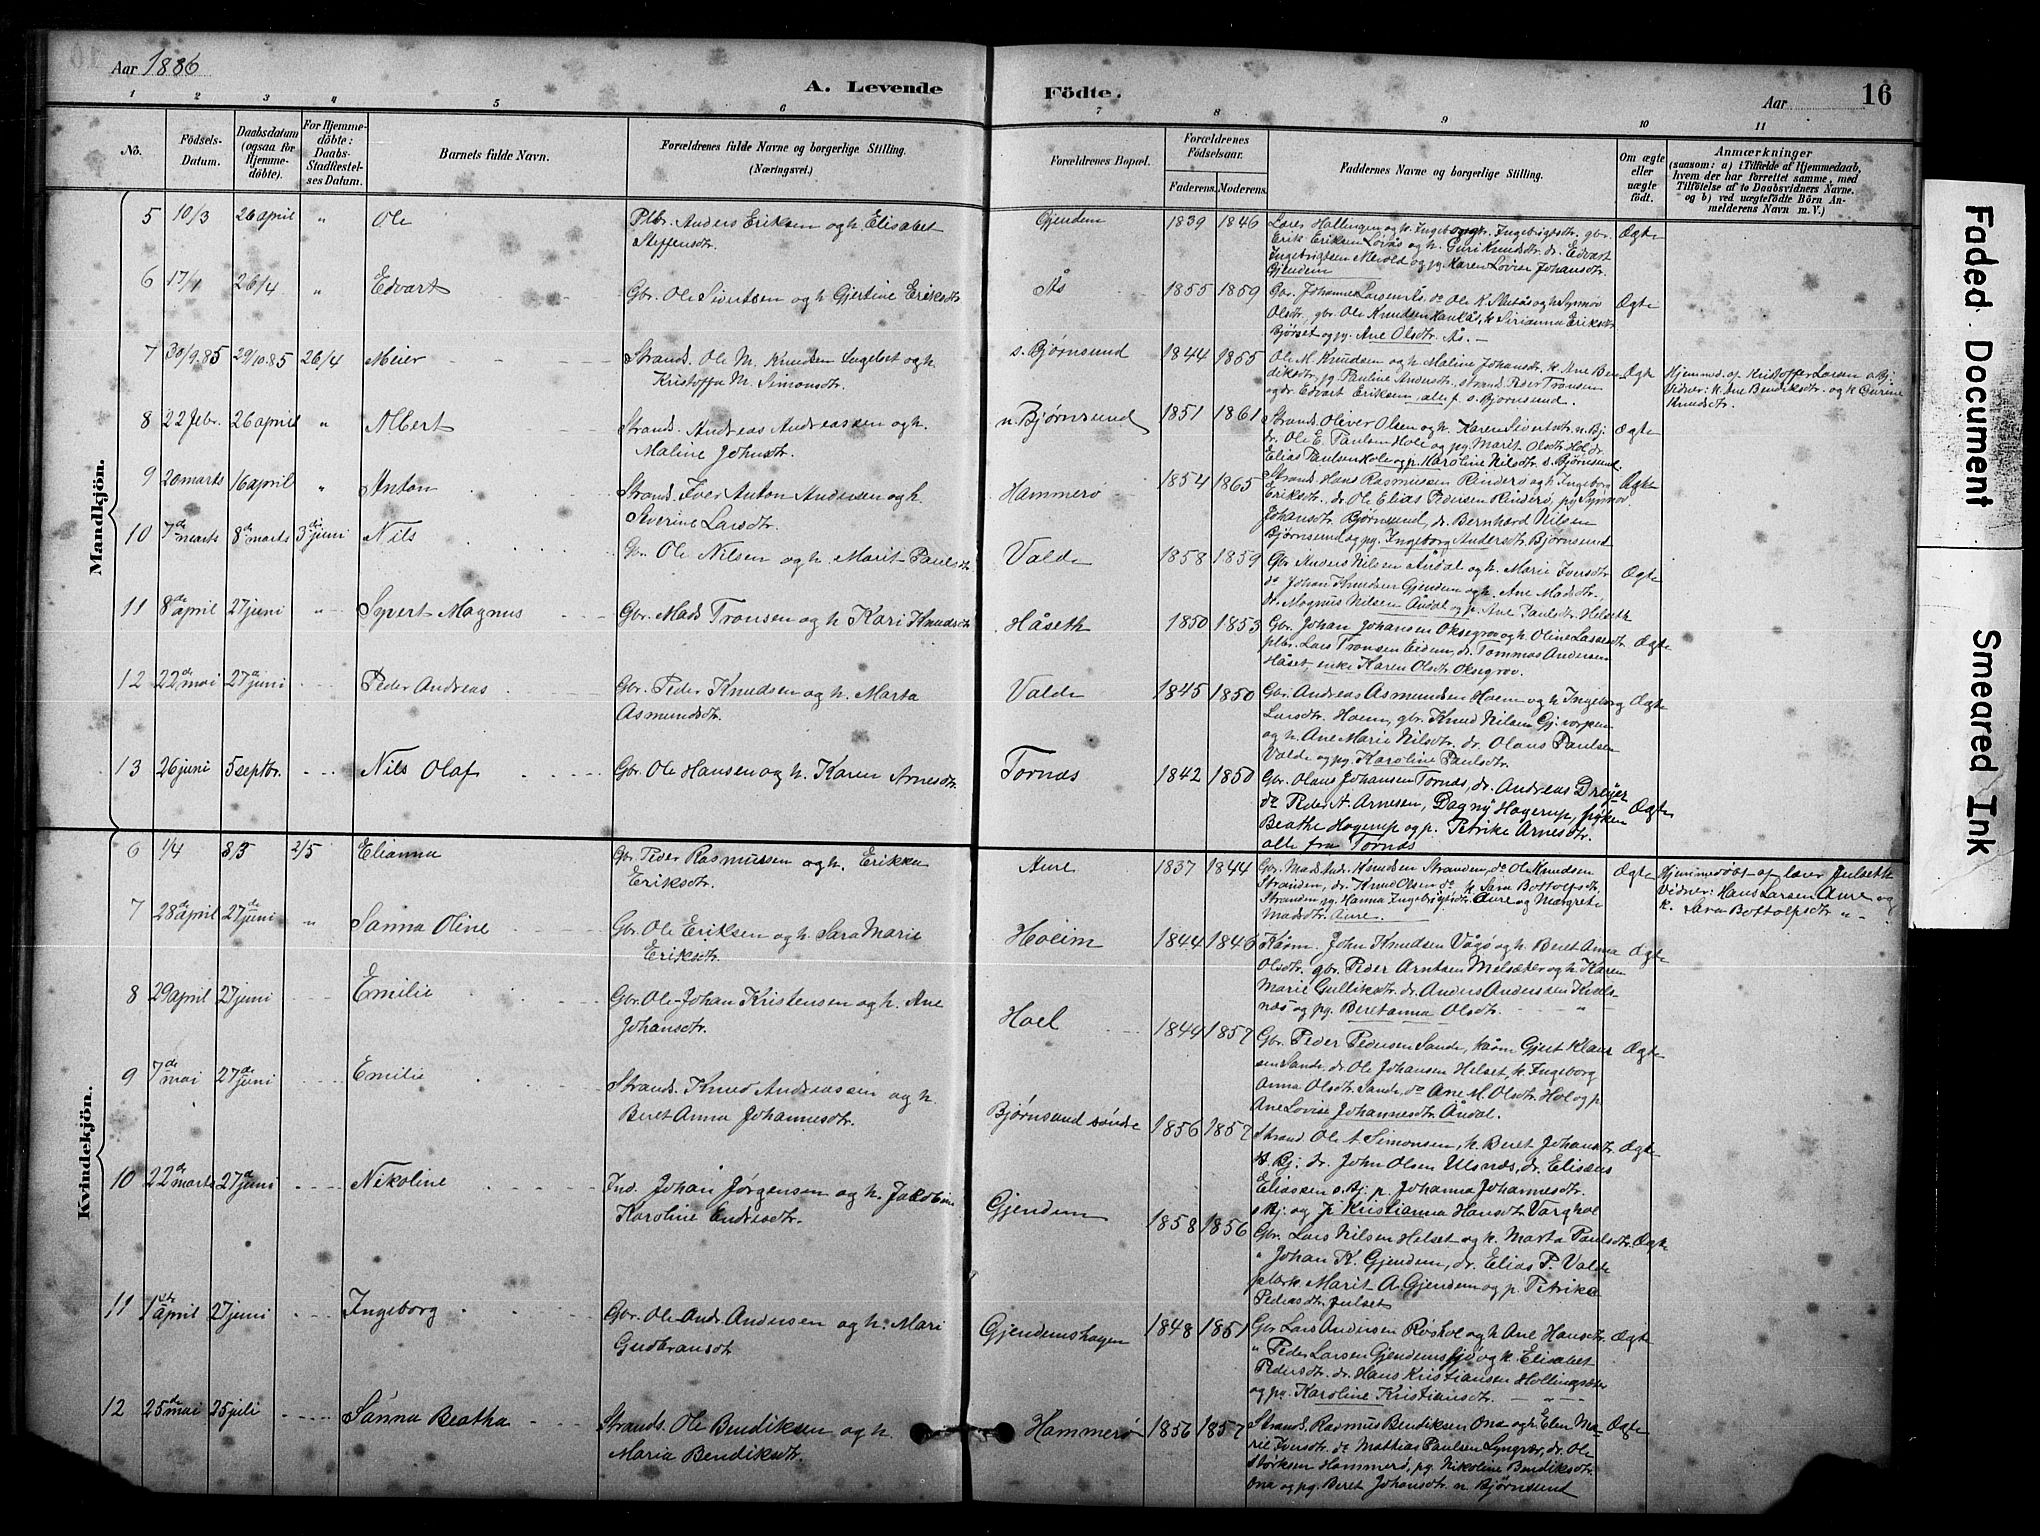 Aar 1886
A. Levende Födte.
Aar 16
1 2 3 4 5 6 7 8 9 10 11
No.
Födsels-Datum.
Daabsdatum (ogsaa for Hjemme-döbte).
For Hjemme-döbte: Daabs-Stadfæstel-ses Datum.
Barnets fulde Navn.
Forældrenes fulde Navne og borgerlige Stilling.
(Næringsvei.)
Forældrenes Bopæl.
Forældrenes Födselsaar.
Faderens. Moderens.
Faddernes Navne og borgerlige Stilling.
Om ægte eller uægte födt.
Anmærkninger
(saasom: a) i Tilfælde af Hjemmedaab, hvem der har forrettet samme, med Tilföielse af to Daabsvidners Navne. og b) ved uægtefödte Börn An-melderens Navn m. V.)
Mandkjön.
5 10/3 26 april " Ole
Plbr. Anders Eriksen og h. Elisabet
Steffensdtr.
Gjendem 1839 1846
Lars Hallingen og h. Ingeborg Ingebrigtsdtr. gbr.
Erik Eriksen Lövås og h. Guri Knudsdtr. dr. Edvart
Ingebrigtsen Merold og pg. Karen Lovise Johansdtr.
Gjendem
Ægte
6 17/1 26/4 " Edvart
Gbr. Ole Sivertsen og h Gjertine Eriksdtr
Ås 1855 1859
Olsdtr, gbr. Ole Knudsen Haukås, k Sirianna Eriksdtr
Bjørset og pg. Ane Olsdtr. Ås. —
Ægte
7 30/9.85 29/10.85 26/4 Meier
Strands. Ole M. Knudsen Ingelset og h.
Kristoffa M. Simonsdtr.
s. Bjørnsund 1844 1855
Ole M. Knudsen og h Maline Johansdtr. k Ane Ben-
diksdtr, pg. Pauline Andersdtr, strands. Peder Tronsen
og dr. Edvart Eriksen, alle f. s. Bjørnsund.
Ægte
Hjemmed. af Kristoffer Larsen s. Bj.
Vidner: k. Ane Bendiksdtr. og k Gurine
Knudsdtr.
8 22 febr. 26 april " Albert
Strands. Andreas Andreassen og h.
Maline Johnsdtr.
n. Bjørnsund 1851 1861
Strands. Oliver Olsen og h. Karen Sivertsdtr. n. Bj.
dr. Ole E. Paulsen Hole og pg. Marit Olsdtr. Hol, dr.
Elias Paulsen Hole og p. Karoline Nilsdtr. s. Bjørnsund.
Ægte
9 20 marts 16 april " Anton
Strands. Iver Anton Andersen og h.
Severine Larsdtr.
Hammerø 1854 1865
Strands. Hans Rasmussen Rinderø og h Ingeborg
Eriksdtr. dr. Ole Elias Pedersen Rinderø, pg. Synnøv
Johansdtr. Bjørnsund, dr. Bernhard Nilsen
Bjørnsund og pg. Ingeborg Andersdtr. Bjørnsund
Ægte
10 7de marts 8de marts 3die juni Nils
Gbr. Ole Nilsen og h. Marit Paulsdtr.
Valde 1858 1859
Gbr Anders Nilsen Aardal og h. Marie Iversdtr
do Johan Knudsen Gjendem og h. Ane Madsdtr.,
dr. Magnus Nilsen Åndal og p. Ane Paulsdtr. Helseth
Ægte
11 8de april 27 juni " Syvert Magnus
Gbr. Mads Tronsen og h Kari Knudsdtr
Håseth 1850 1853
Gbr. Johan Johansen Oksegrov og h. Oline Larsdtr
plbr. Lars Tronsen Eidem, dr. Tommas Andersen
Håset, enke Karen Olsdtr. Oksegrov.
Ægte
12 22de mai 27de juni Peder Andreas
Gbr. Peder Knudsen og h. Marta
Asmundsdtr.
Valde 1845 1850
Gbr. Andreas Asmundsen Hoem og h Ingeborg
Larsdtr. Hoem, gbr. Knud Nilsen
og h. Ane Marie Nilsdtr. dr. Olaus Paulsen
Valde og pg. Karoline Paulsdtr.
Ægte
13 26 juni 5 septbr. Nils Olaf
Gbr. Ole Hansen og h. Karen Arnesdtr.
Tornæs 1842 1850
Gbr. Olaus Johansen Tornæs, dr. Andreas Dreyer
do Peder A. Arnesen, Dagny Hagerup, frøken
Beathe Hagerup og p. Petrike Arnesdtr.
alle fra Tornæs
Ægte
Kvindekjön.
6 1/4 8/5 2/5 Elianna
Gbr. Peder Rasmussen og h. Erikka
Eriksdtr.
Aure 1837 1844
Gbr. Mads Andr. Knudsen Stranden, do Ole Knudsen
Stranden, dr. Knud Olsen do, k Sara Bottolfsdtr.
Stranden, pg. Hanna Ingebrigtsdtr. Aure og Margrete
Madsdtr. Aure.
Ægte
Hjemmedøbt af lærer Julseth
Vidner: Hans Larsen Aure og
k. Sara Bottolfsdtr. "
7 28de april 27de juni " Sanna Oline
Gbr. Ole Eriksen og h. Sara Marie
Eriksdtr.
Hoeim 1844 1846
Kåsm. John Knudsen Vågø og h. Beret Anna
Olsdtr. gbr. Peder Arntsen Melsæter og h. Karen
Marie Gulliksdtr. dr. Anders Anderssen Kvels-
næs og pg. Beretanna Olsdtr. "
Ægte
8 29 april 27 juni Emilie
Gbr. Ole Johan Kristensen og h. Ane
Johansdtr.
Hoel 1844 1857
Gbr. Peder Pedersen Sande, kåsm Gjert Klaus
sen Sande, dr. Ole Johansen Helset, k. Ingeborg
Anna Olsdtr. Sande, do Ane M. Olsdtr. Hol og p.
Ane Lovise Johannesdtr. Åndal.
Ægte
9 7de mai 27de juni Emilie
Strands. Knud Andreassen og h.
Beret Anna Johannesdtr.
Bjørnsund søndre 1856 1857
Strand. Ole A. Simonsen, k. Beret Johansdtr.
s. Bj. dr. John Olsen Ulsnæs, dr. Elisæus
Eliassen s. Bj. p. Johanna Johannesdtr.
s Bj. og p Kristianna Hansdtr. Varghol
Ægte
10 22de marts 27de juni Nikoline
Ind. Johan Jørgensen og h. Jakobine
Karoline Endresdtr.
Gjendem 1858 1856
Gbr. Lars Nilsen Helset og h. Marta Paulsdtr.
" Johan K. Gjendem, dr. Elias P. Valde
Marit A. Gjendem og p. Petrike
Pedersdtr. Julset
Ægte
11 1ste april 27 juni Ingeborg
Gbr. Ole Andr. Andersen og h. Mari
Gudbransdtr.
Gjendemshagen 1848 1851
Gbr Lars Andersen Røshol og h Ane Hansdtr.
" Peder Larsen Gjendemsjø og k. Elisabet
Pedersdtr. dr. Hans Kristiansen Hollingsæter
og pg. Karoline Kristiansdtr. "
Ægte
12 25de mai 25 juli Sanna Beatha
Strands. Ole Bendiksen og h.
Maria Bendiksdtr.
Hammerø 1856 1857
Strands. Rasmus Bendiksen Ona og h. Elen Ma-
rie Iversdtr. do Mathias Paulsen Lyngvær, dr. Ole
Størksen Hammerø, pg. Nikoline Bendiksdtr.
Ona og pg. Beret Johansdtr. n. Bjørnsund
Ægte
Faded Document
Smeared Ink